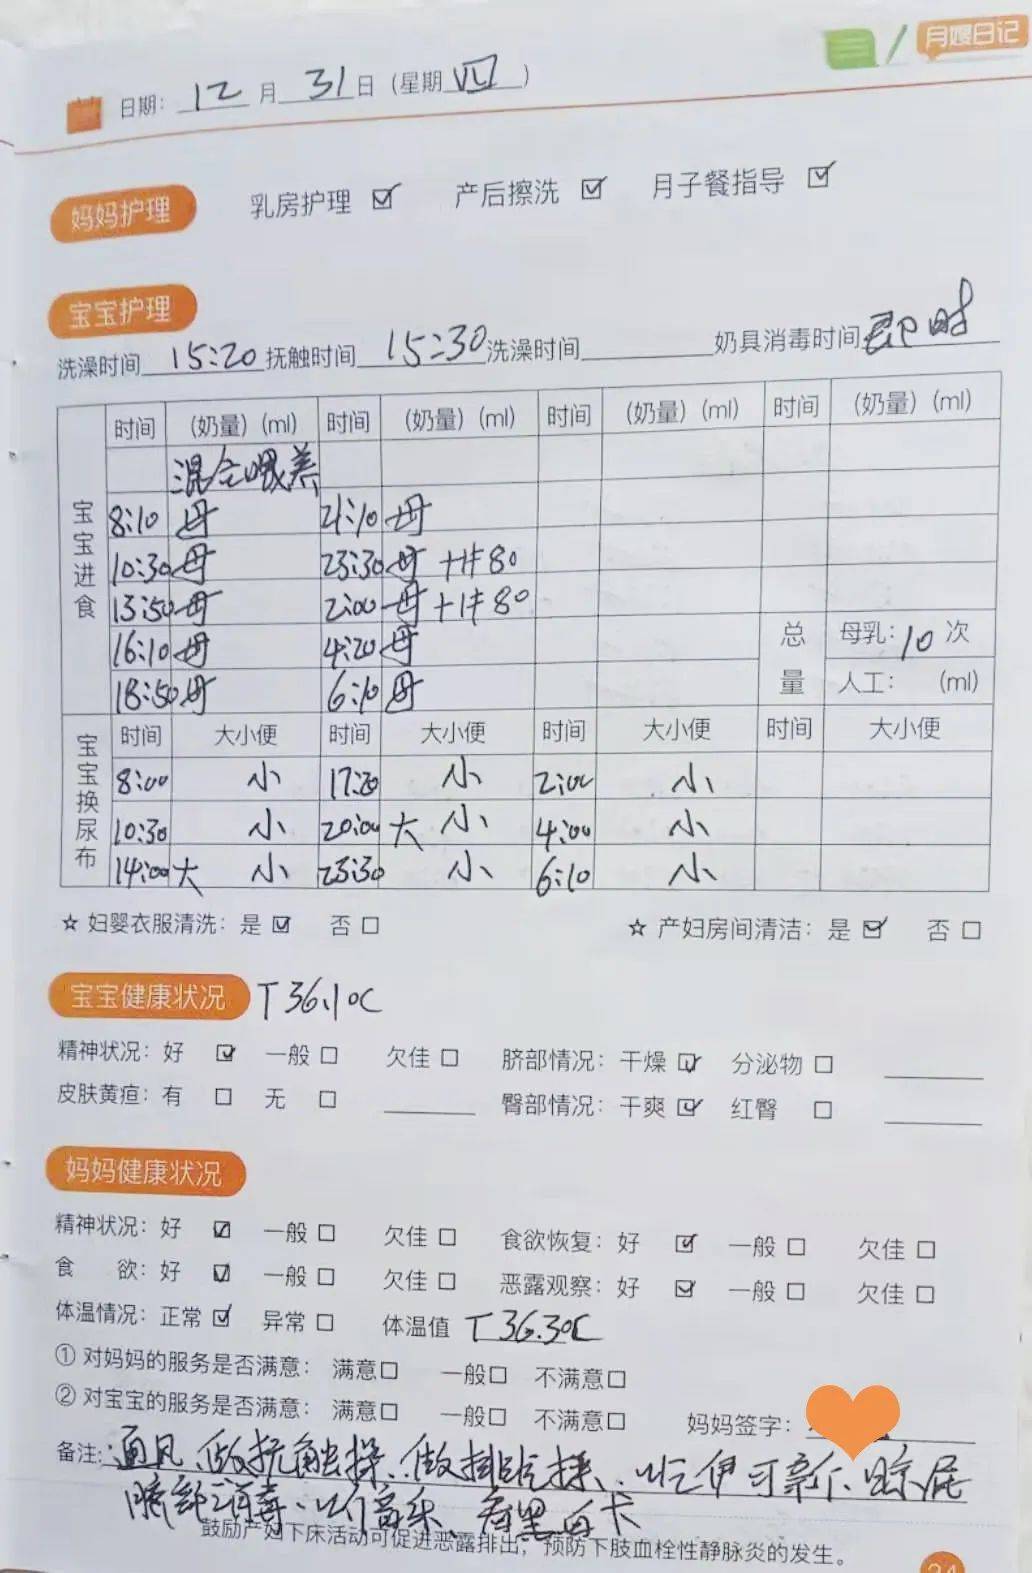 月嫂日记
日期: 12 月 31 日 (星期 四 )
妈妈护理 乳房护理 ☑ 产后擦洗 ☑ 月子餐指导 ☑
宝宝护理
洗澡时间 15:20 抚触时间 15:30 洗澡时间 奶具消毒时间 即时
宝宝进食
时间 (奶量) (ml) 时间 (奶量) (ml) 时间 (奶量) (ml) 时间 (奶量) (ml)
混合喂养
8:10 母 21:10 母
10:30 母 23:30 母 +奶 80
13:50 母 2:00 母 +奶 80
16:10 母 4:20 母 总量 母乳: 10 次
18:50 母 6:10 母 人工: (ml)
宝宝换尿布
时间 大小便 时间 大小便 时间 大小便 时间 大小便
8:00 小 17:30 小 2:00 小
10:30 小 20:00 大 小 4:00 小
14:00 大 小 23:30 小 6:10 小
☆ 妇婴衣服清洗: 是 ☑ 否 □ ☆ 产妇房间清洁: 是 ☑ 否 □
宝宝健康状况 T 36.1℃
精神状况: 好 ☑ 一般 □ 欠佳 □ 脐部情况: 干燥 ☑ 分泌物 □
皮肤黄疸: 有 □ 无 □ 臀部情况: 干爽 ☑ 红臀 □
妈妈健康状况
精神状况: 好 ☑ 一般 □ 欠佳 □ 食欲恢复: 好 ☑ 一般 □ 欠佳 □
食 欲: 好 ☑ 一般 □ 欠佳 □ 恶露观察: 好 ☑ 一般 □ 欠佳 □
体温情况: 正常 ☑ 异常 □ 体温值 T 36.3℃
① 对妈妈的服务是否满意: 满意 □ 一般 □ 不满意 □
② 对宝宝的服务是否满意: 满意 □ 一般 □ 不满意 □ 妈妈签字:
备注: 通风、做抚触操、做排气操、吃伊可新、晾屁
脐部消毒、听音乐、看黑白卡
鼓励产妇下床活动可促进恶露排出, 预防下肢血栓性静脉炎的发生。